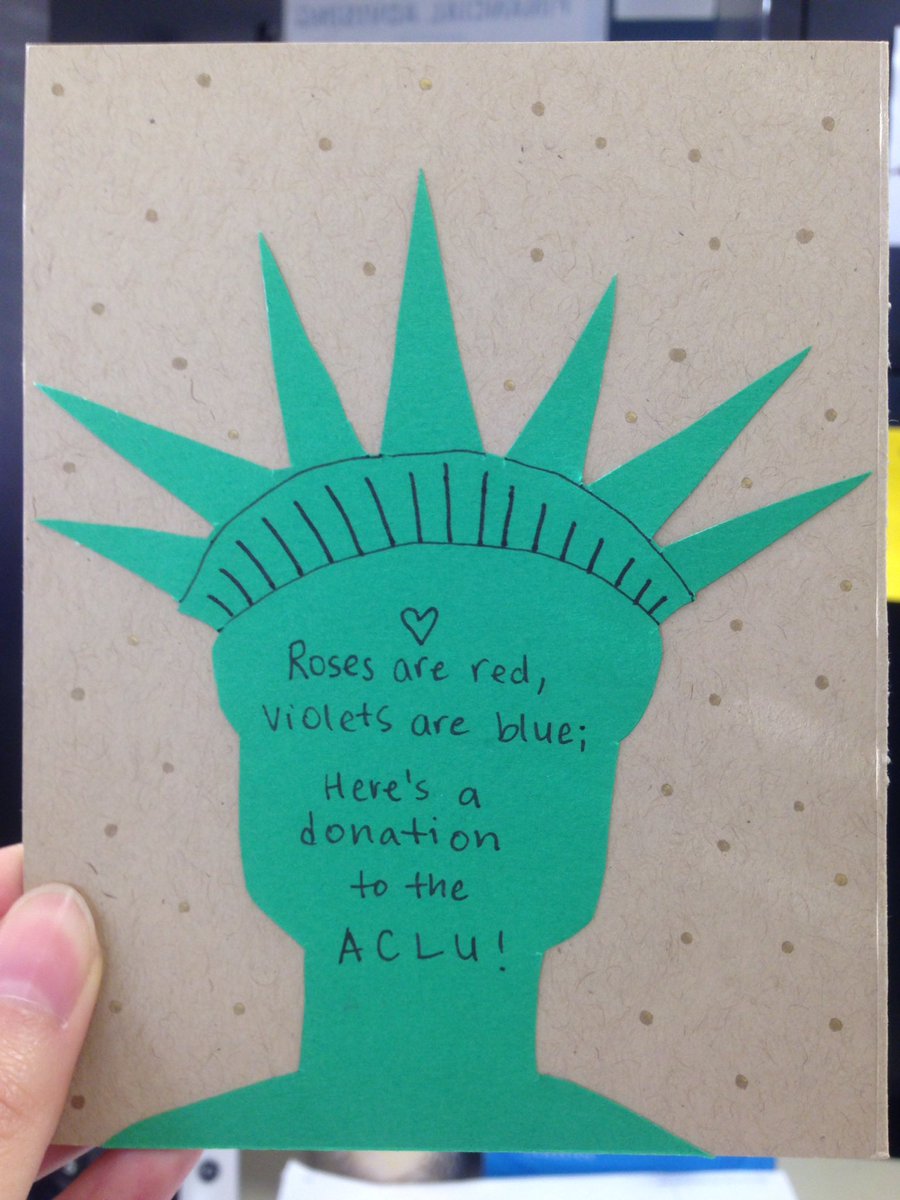 FINANCIAL ADVISING
♡
Roses are red,
violets are blue;
Here's a
donation
to the
ACLU!